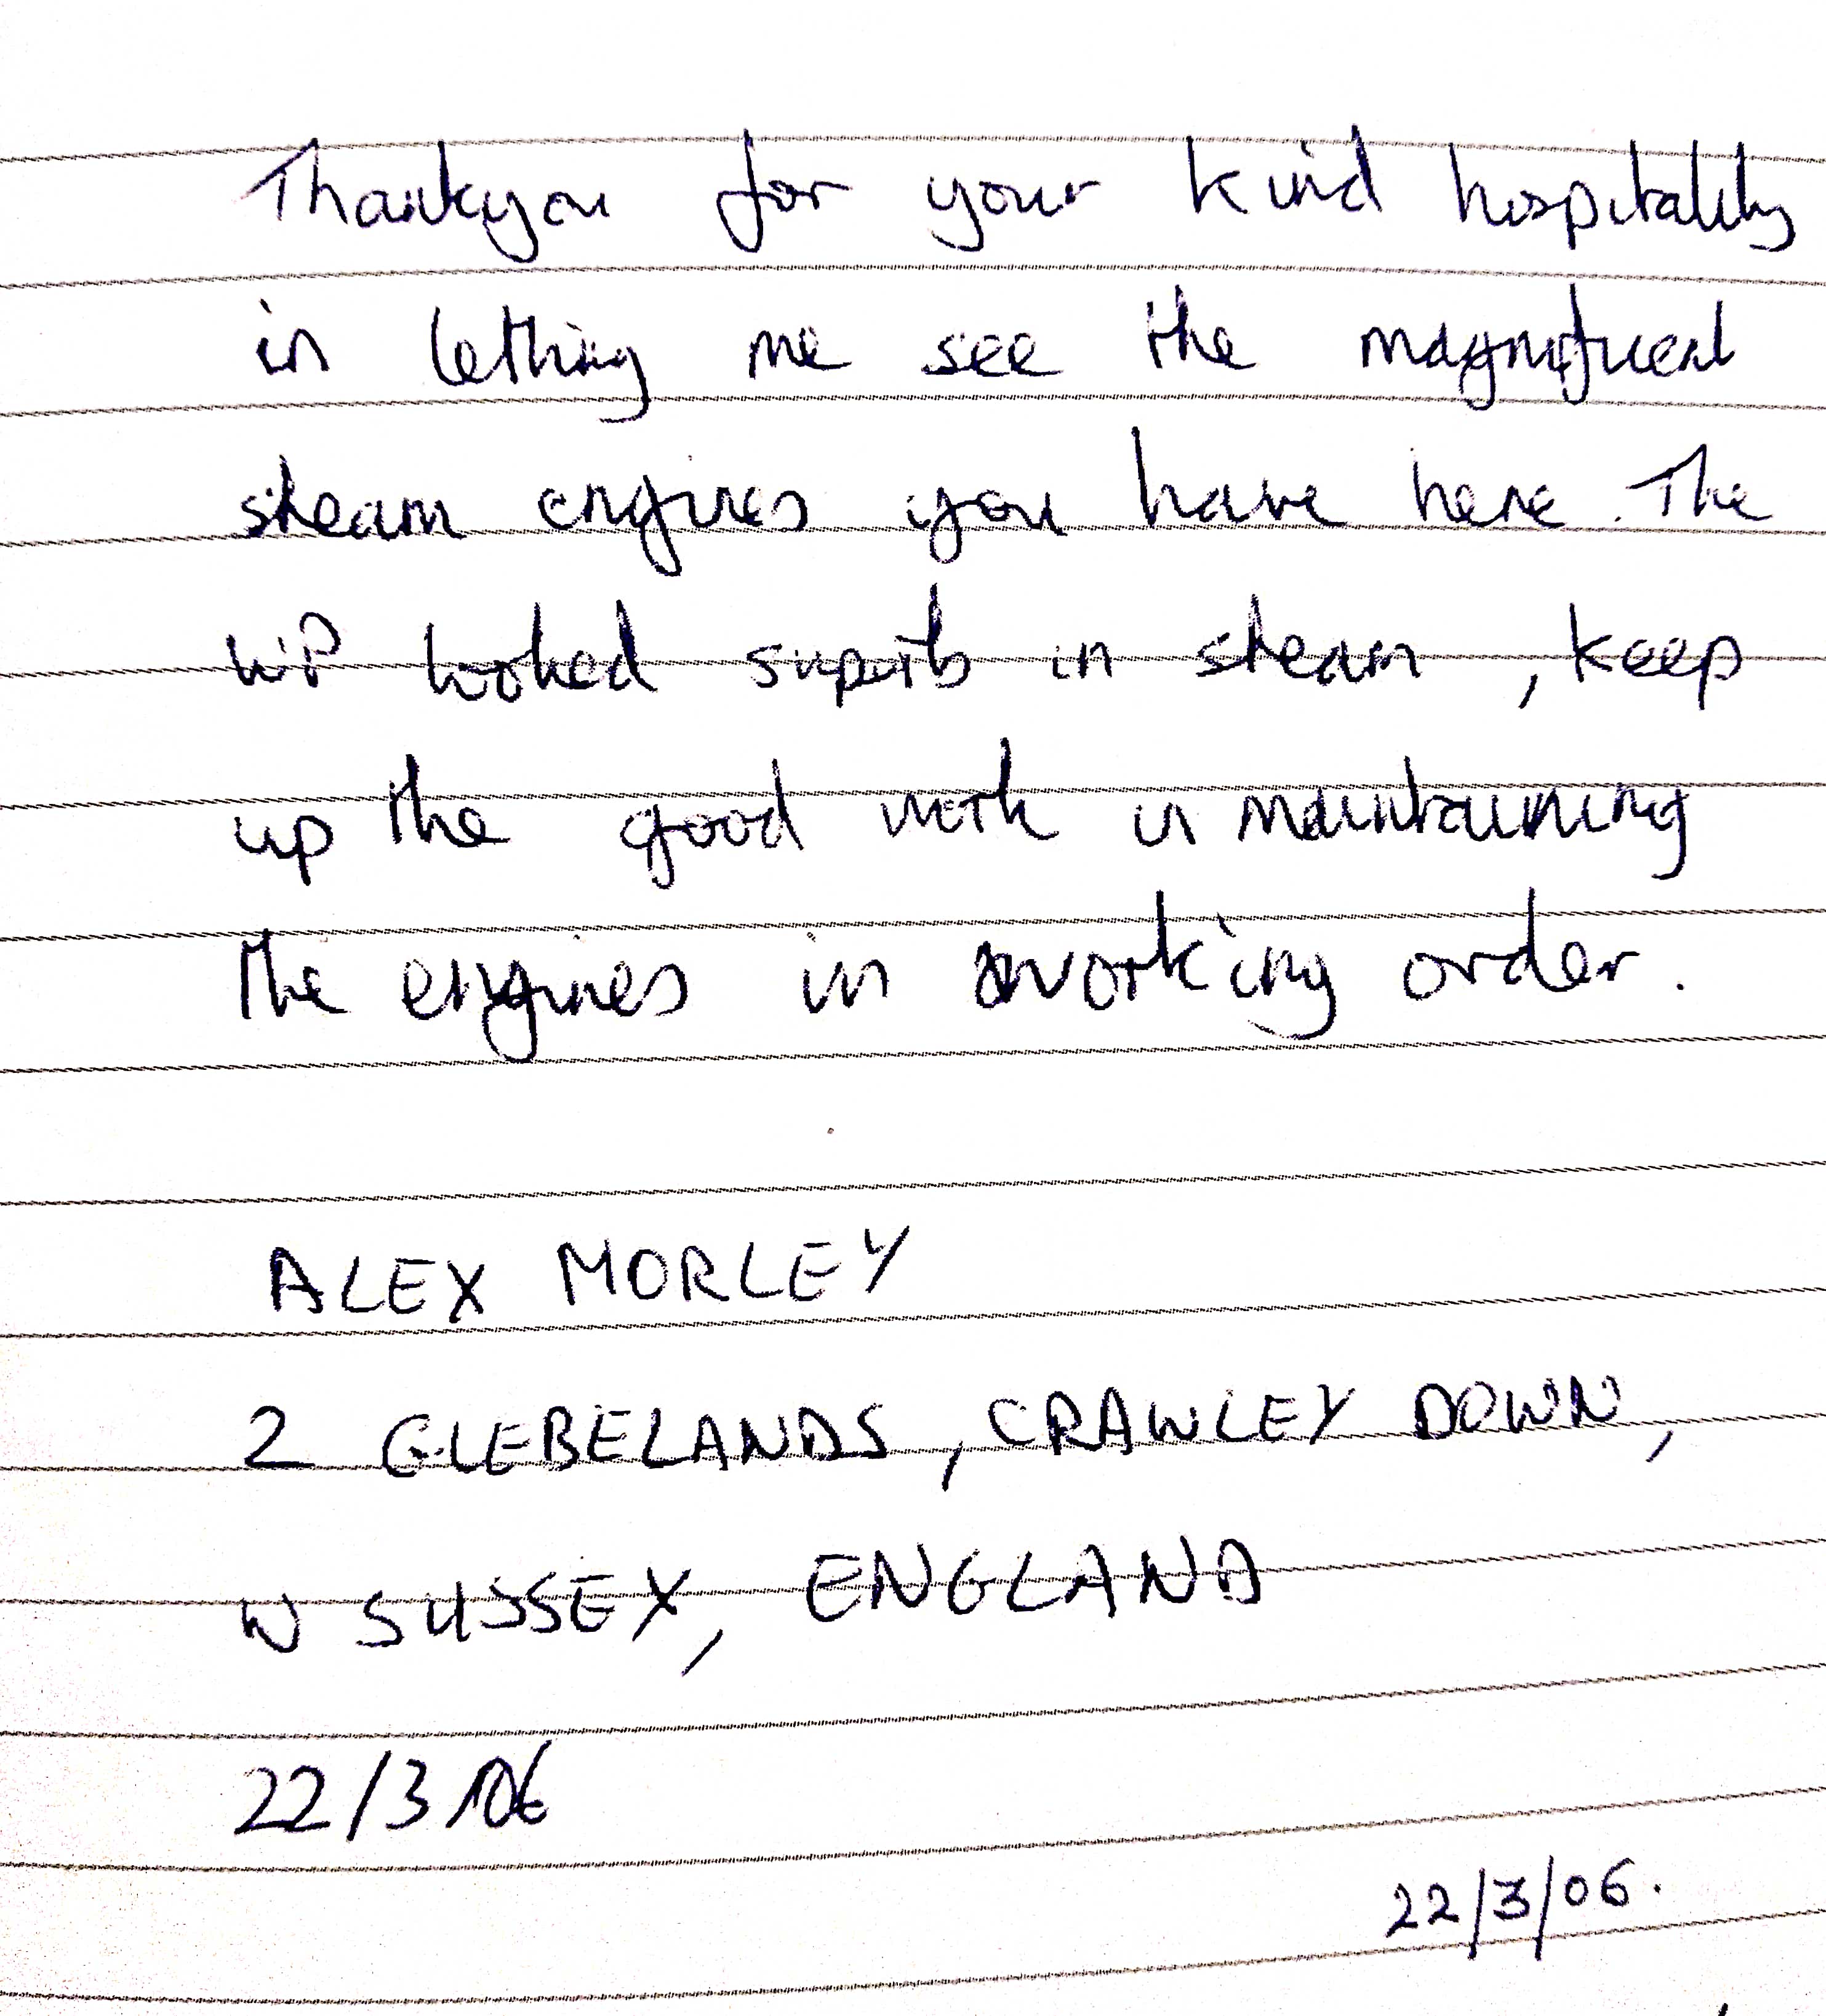 Thankyou for your kind hospitality
in letting me see the magnificent
steam engines you have here. The
WP looked superb in steam, keep
up the good work in maintaining
the engines in working order.
ALEX MORLEY
2 GLEBELANDS, CRAWLEY DOWN,
W SUSSEX, ENGLAND
22/3/06
22/3/06.